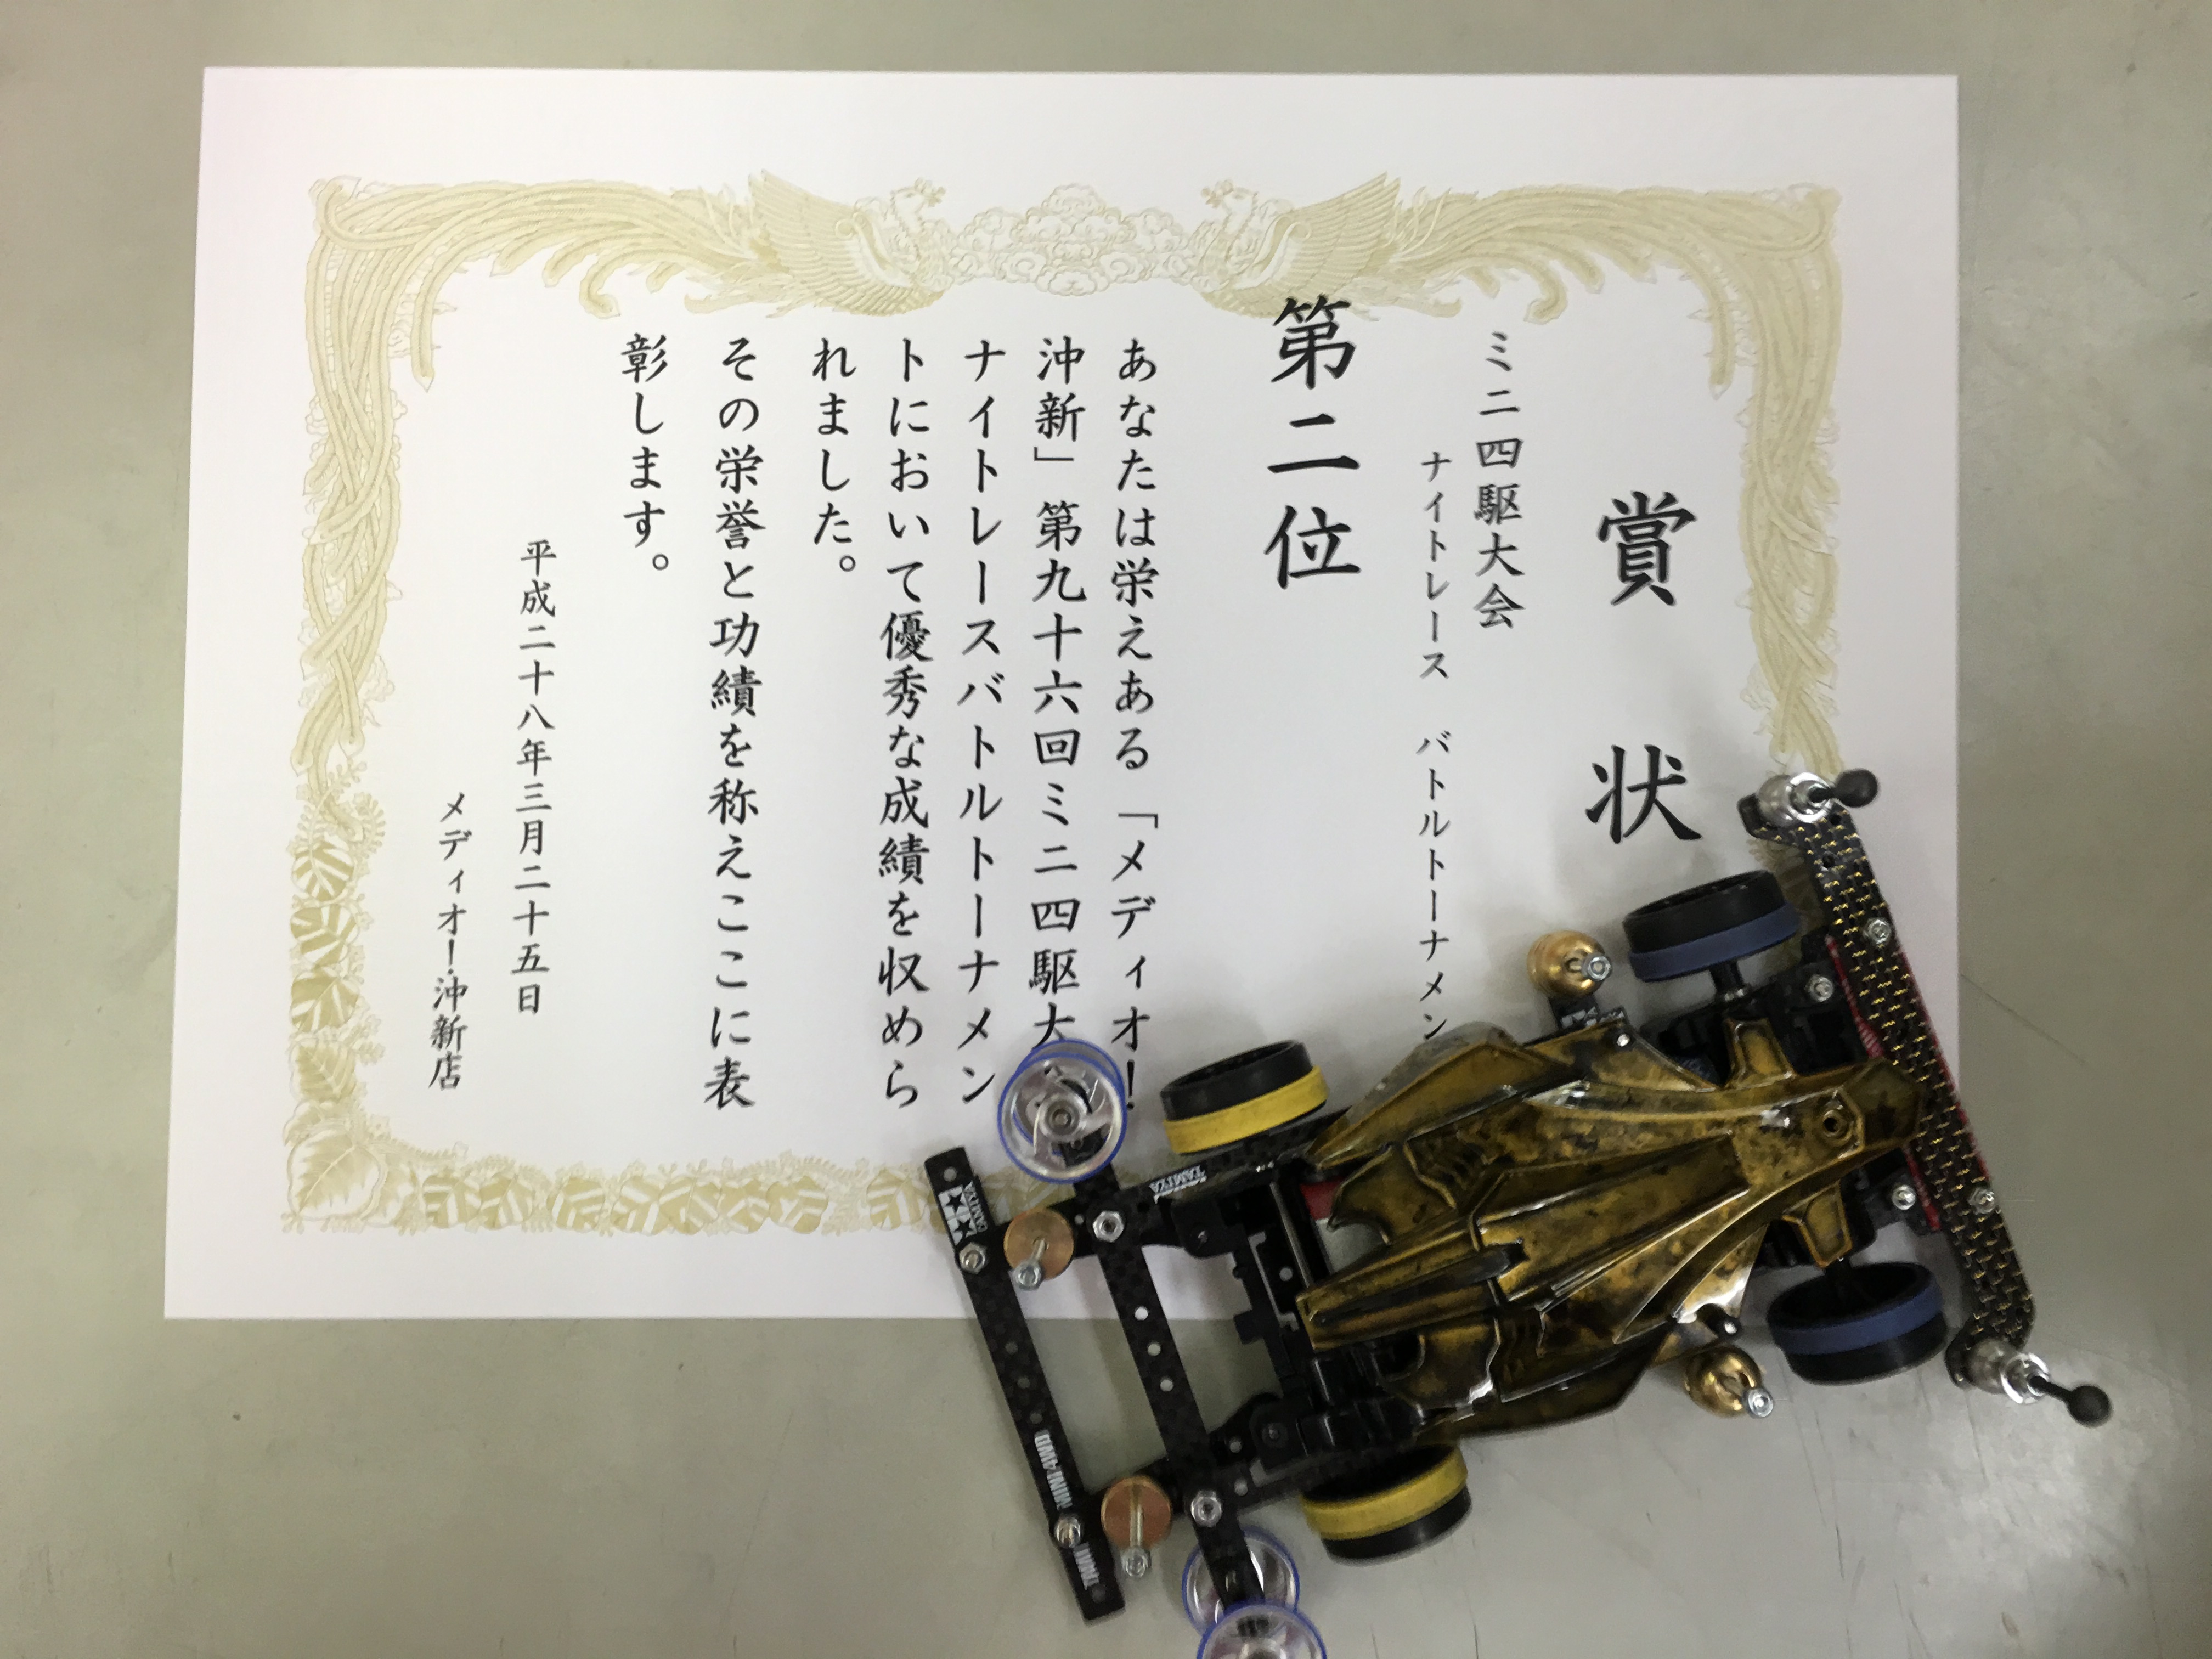 賞状
ミニ四駆大会
ナイトレース バトルトーナメン
第二位
あなたは栄えある「メディオ！
沖新」第九十六回ミニ四駆大
ナイトレースバトルトーナメン
トにおいて優秀な成績を収めら
れました。
その栄誉と功績を称えここに表
彰します。
平成二十八年三月二十五日
メディオ！沖新店
TAMIYA
TAMIYA
MINI 4WD